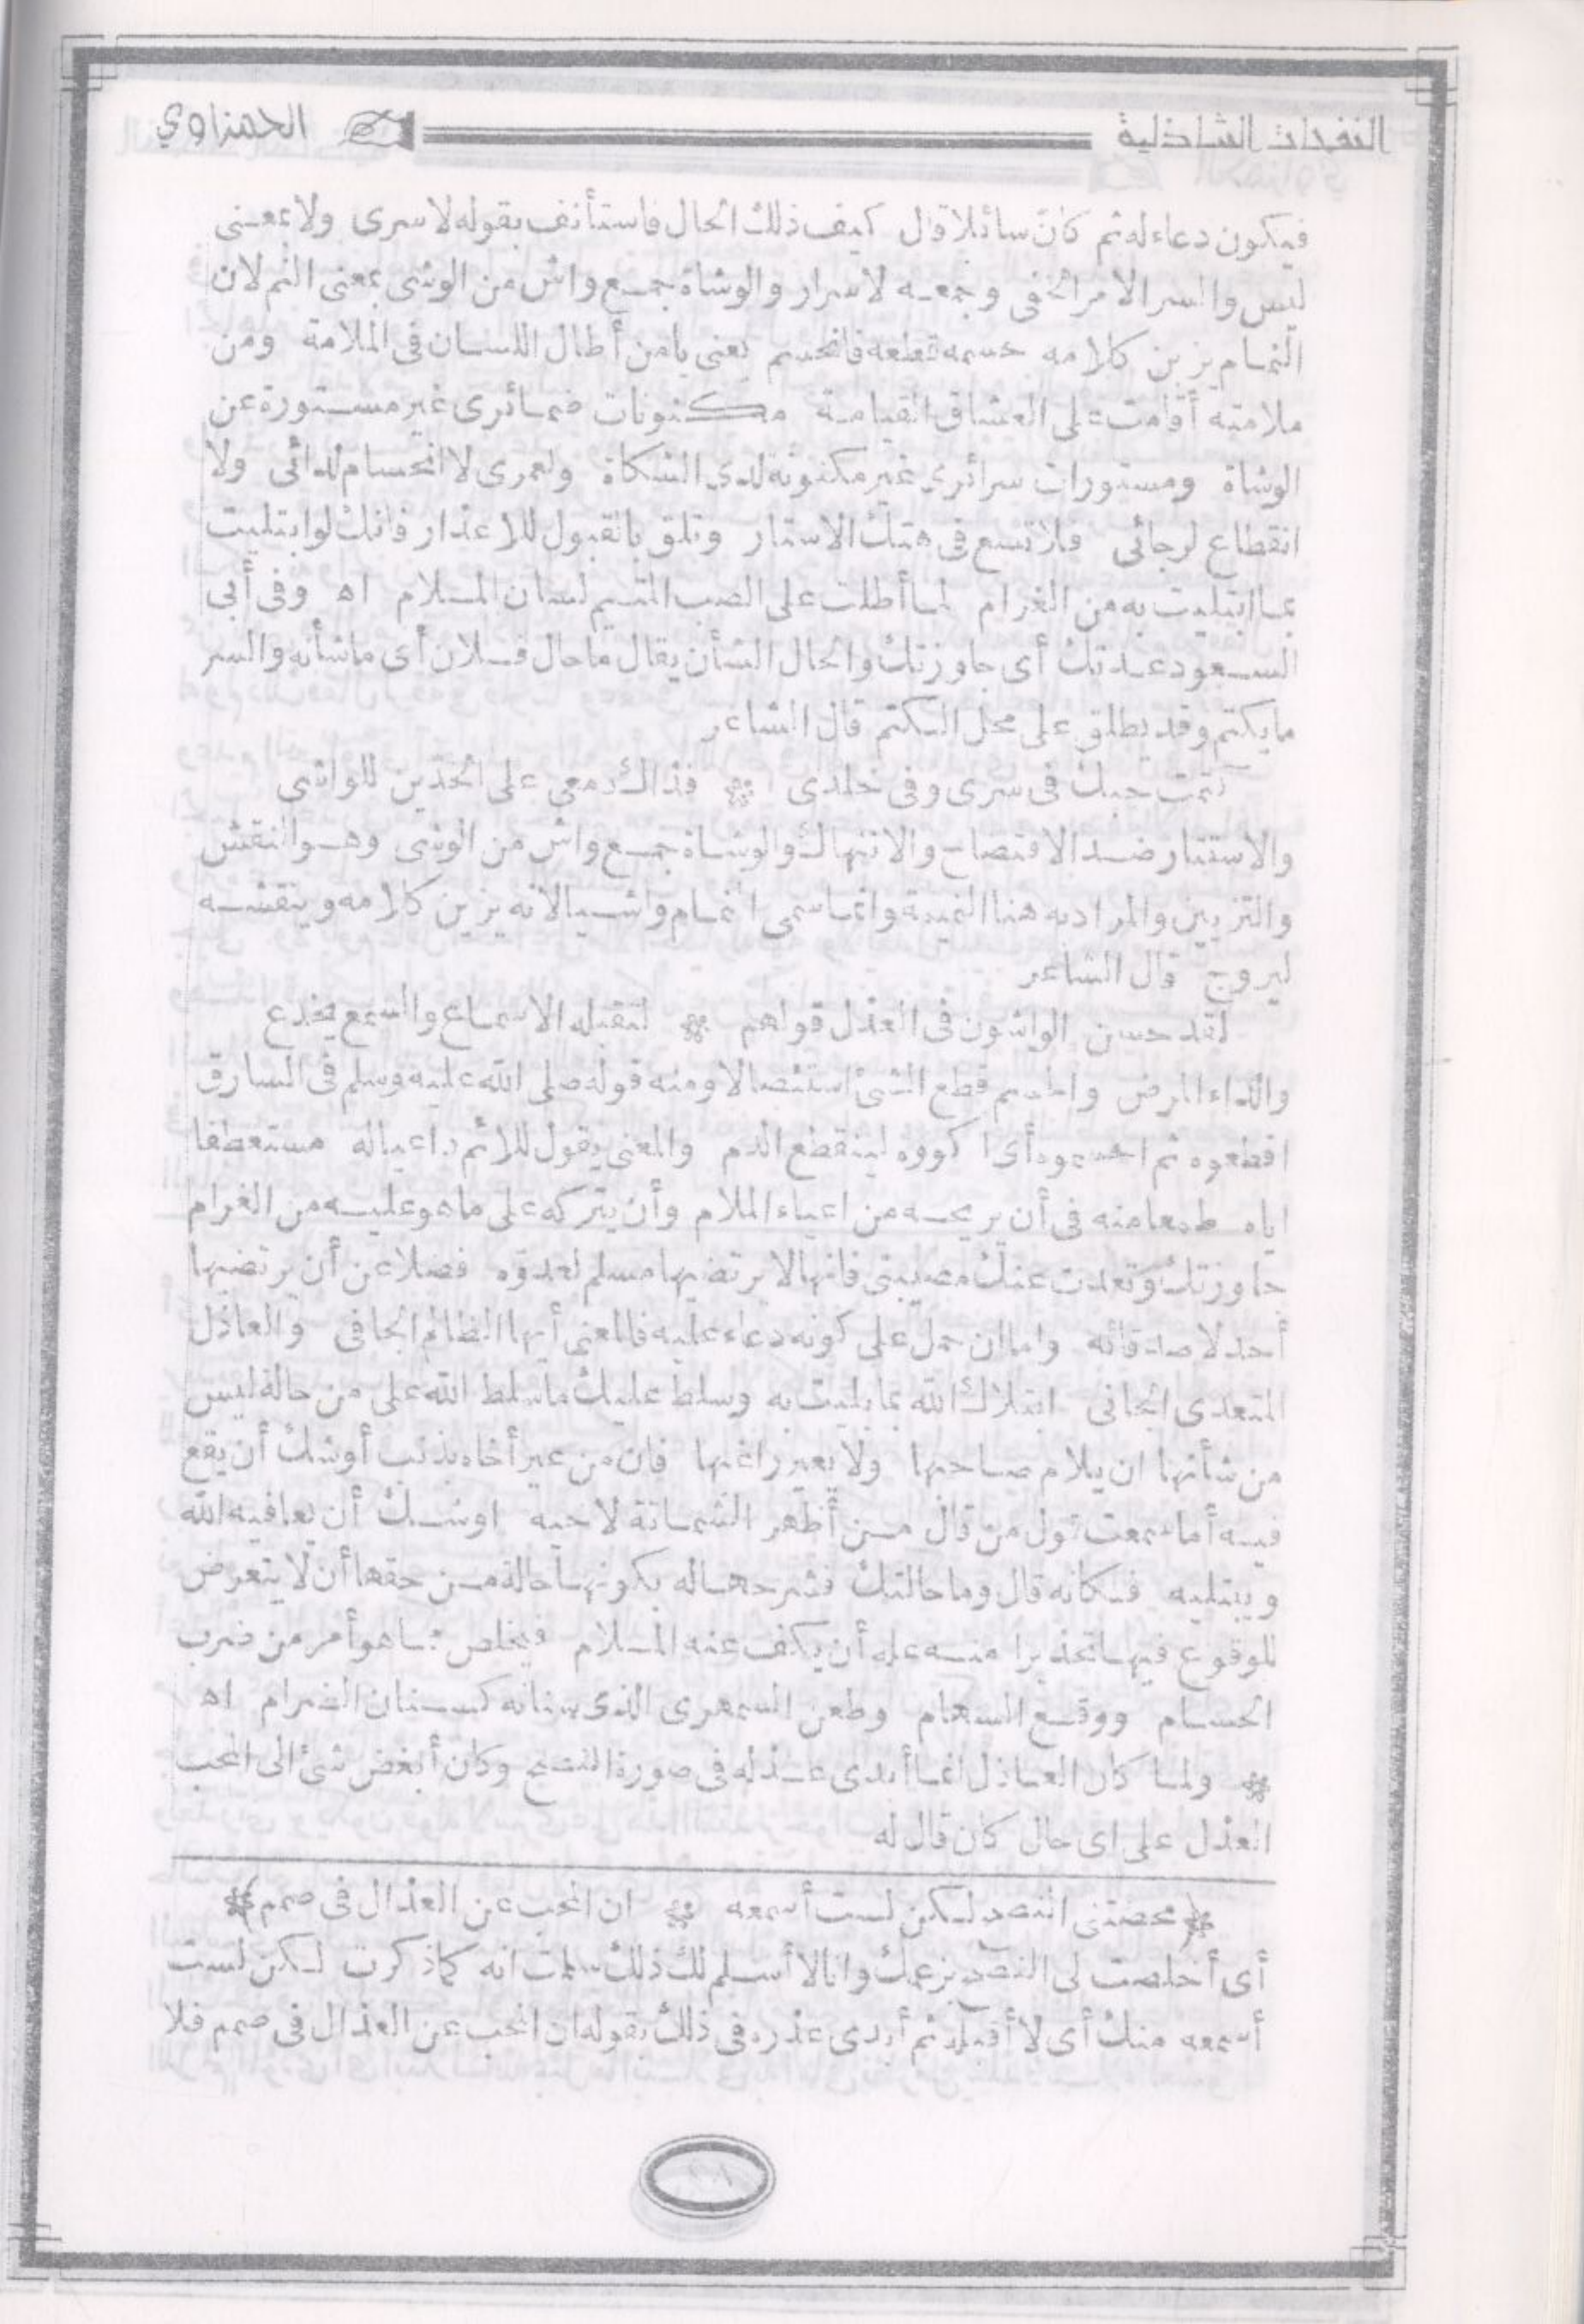 النفحات الشاذلية الحمزاوي
فيكون دعاء له ثم كان سائلا قال كيف ذلك الحال فاستأنف بقوله لا سرى ولا بمعنى
ليس والسر الامر الخفى وجمعه لاسرار والوشاة جمع واش من الوشى بمعنى النم لان
النمام يزين كلامه حسمه قطعه فانحسم يعنى يامن أطال اللسان فى الملامة ومن
ملامته أقامت على العشاق القيامة مكنونات ضمائرى غير مستورة عن
الوشاة ومستورات سرائرى غير مكنونة لدى الشكاة ولعمرى لا انحسام لدائى ولا
انقطاع لرجائى فلا تسع فى هتك الاستار وتلق بالقبول للاعذار فانك لو ابتليت
بما ابتليت به من الغرام لما أطلت على الصب المتيم لسان الملام اه وفى أبى
السعود عدتك أى جاوزتك والحال الشأن يقال ما حال فلان أى ما شأنه والسر
ما يكتم وقد يطلق على محل الكتم قال الشاعر
كتمت حبك فى سرى وفى خلدى * فذاك دمعى على الخدين للواشى
والاستتار ضد الافتضاح والانتهاك والوشاة جمع واش من الوشى وهو النقش
والتزيين والمراد به هنا النميمة وانما سمى النمام واشيا لانه يزين كلامه وينقشه
ليروج قال الشاعر
لقد حسن الواشون فى العذل قولهم * لتقبله الاسماع والسمع يخدع
والداء المرض والحسم قطع الشئ استئصالا ومنه قوله صلى الله عليه وسلم فى السارق
اقطعوه ثم احسموه أى اكووه لينقطع الدم والمعنى يقول للائم داعيا له مستعطفا
اياه طمعا منه فى أن يريحه من اعباء الملام وأن يتركه على ما هو عليه من الغرام
جاوزتك وتعدت عنك مصيبتى فانها لا يرتضيها مسلم لعدوه فضلا عن أن يرتضيها
أحد لاصدقائه واما ان حمل على كونه دعاء عليه فالمعنى أيها الظالم الجافى والعاذل
المتعدى الجافى ابتلاك الله بما بليت به وسلط عليك ما سلط الله على من حالة ليس
من شأنها ان يلام صاحبها ولا يعير راغبها فان من عير أخاه بذنب أوشك أن يقع
فيه أما سمعت قول من قال من أظهر الشماتة لاخيه اوشك أن يعافيه الله
ويبتليه فكانه قال وما حالتك فشرحها له بكونها حالة من حقها أن لا يتعرض
للوقوع فيها تحذيرا منه عله أن يكف عنه الملام فيخلص مما هو أمر من ضرب
الحسام ووقع السهام وطعن السمهرى الذى سنانه كسنان الضرام اه
* ولما كان العاذل انما أبدى عذله فى صورة النصح وكان أبغض شئ الى المحب
العذل على اى حال كان قال له
* محضتنى النصح لكن لست أسمعه * ان المحب عن العذال فى صمم *
أى أخلصت لى النصح بزعمك وانا لا أسلم لك ذلك سلمت انه كما ذكرت لكن لست
أسمعه منك أى لا أقبله ثم أبدى عذره فى ذلك بقوله ان المحب عن العذال فى صمم فلا